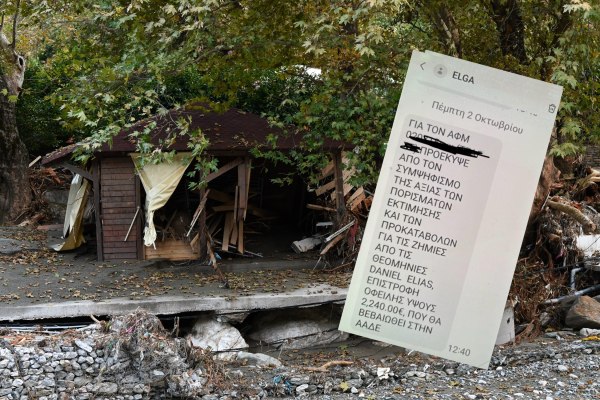 ELGA
Πέμπτη 2 Οκτωβρίου
ΓΙΑ ΤΟΝ ΑΦΜ
ΠΡΟΕΚΥΨΕ
ΑΠΟ ΤΟΝ
ΣΥΜΨΗΦΙΣΜΟ
ΤΗΣ ΑΞΙΑΣ ΤΩΝ
ΠΟΡΙΣΜΑΤΩΝ
ΕΚΤΙΜΗΣΗΣ
ΚΑΙ ΤΩΝ
ΠΡΟΚΑΤΑΒΟΛΩΝ
ΓΙΑ ΤΙΣ ΖΗΜΙΕΣ
ΑΠΟ ΤΙΣ
ΘΕΟΜΗΝΙΕΣ
DANIEL ELIAS,
ΕΠΙΣΤΡΟΦΗ
ΟΦΕΙΛΗΣ ΥΨΟΥΣ
2,240.00€, ΠΟΥ ΘΑ
ΒΕΒΑΙΩΘΕΙ ΣΤΗΝ
ΑΑΔΕ
12:40